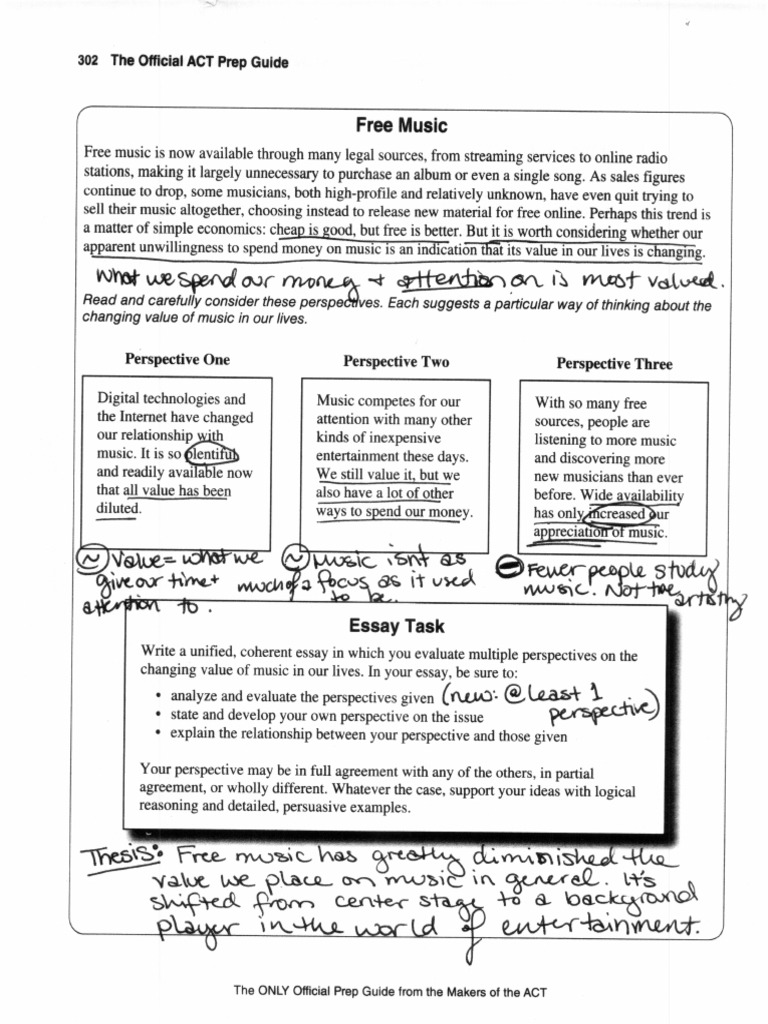 302 The Official ACT Prep Guide
Free Music
Free music is now available through many legal sources, from streaming services to online radio
stations, making it largely unnecessary to purchase an album or even a single song. As sales figures
continue to drop, some musicians, both high-profile and relatively unknown, have even quit trying to
sell their music altogether, choosing instead to release new material for free online. Perhaps this trend is
a matter of simple economics: cheap is good, but free is better. But it is worth considering whether our
apparent unwillingness to spend money on music is an indication that its value in our lives is changing.
What we spend our money + attention on is most valued.
Read and carefully consider these perspectives. Each suggests a particular way of thinking about the
changing value of music in our lives.
Perspective One
Digital technologies and
the Internet have changed
our relationship with
music. It is so plentiful
and readily available now
that all value has been
diluted.
~ Value = what we
give our time +
attention to.
Perspective Two
Music competes for our
attention with many other
kinds of inexpensive
entertainment these days.
We still value it, but we
also have a lot of other
ways to spend our money.
~ Music isnt as
much of a focus as it used
to be.
Perspective Three
With so many free
sources, people are
listening to more music
and discovering more
new musicians than ever
before. Wide availability
has only increased our
appreciation of music.
– Fewer people study
music. Not the
artistry
Essay Task
Write a unified, coherent essay in which you evaluate multiple perspectives on the
changing value of music in our lives. In your essay, be sure to:
• analyze and evaluate the perspectives given (new: @ least 1
perspective)
• state and develop your own perspective on the issue
• explain the relationship between your perspective and those given
Your perspective may be in full agreement with any of the others, in partial
agreement, or wholly different. Whatever the case, support your ideas with logical
reasoning and detailed, persuasive examples.
Thesis: Free music has greatly diminished the
value we place on music in general. It's
shifted from center stage to a background
player in the world of entertainment.
The ONLY Official Prep Guide from the Makers of the ACT